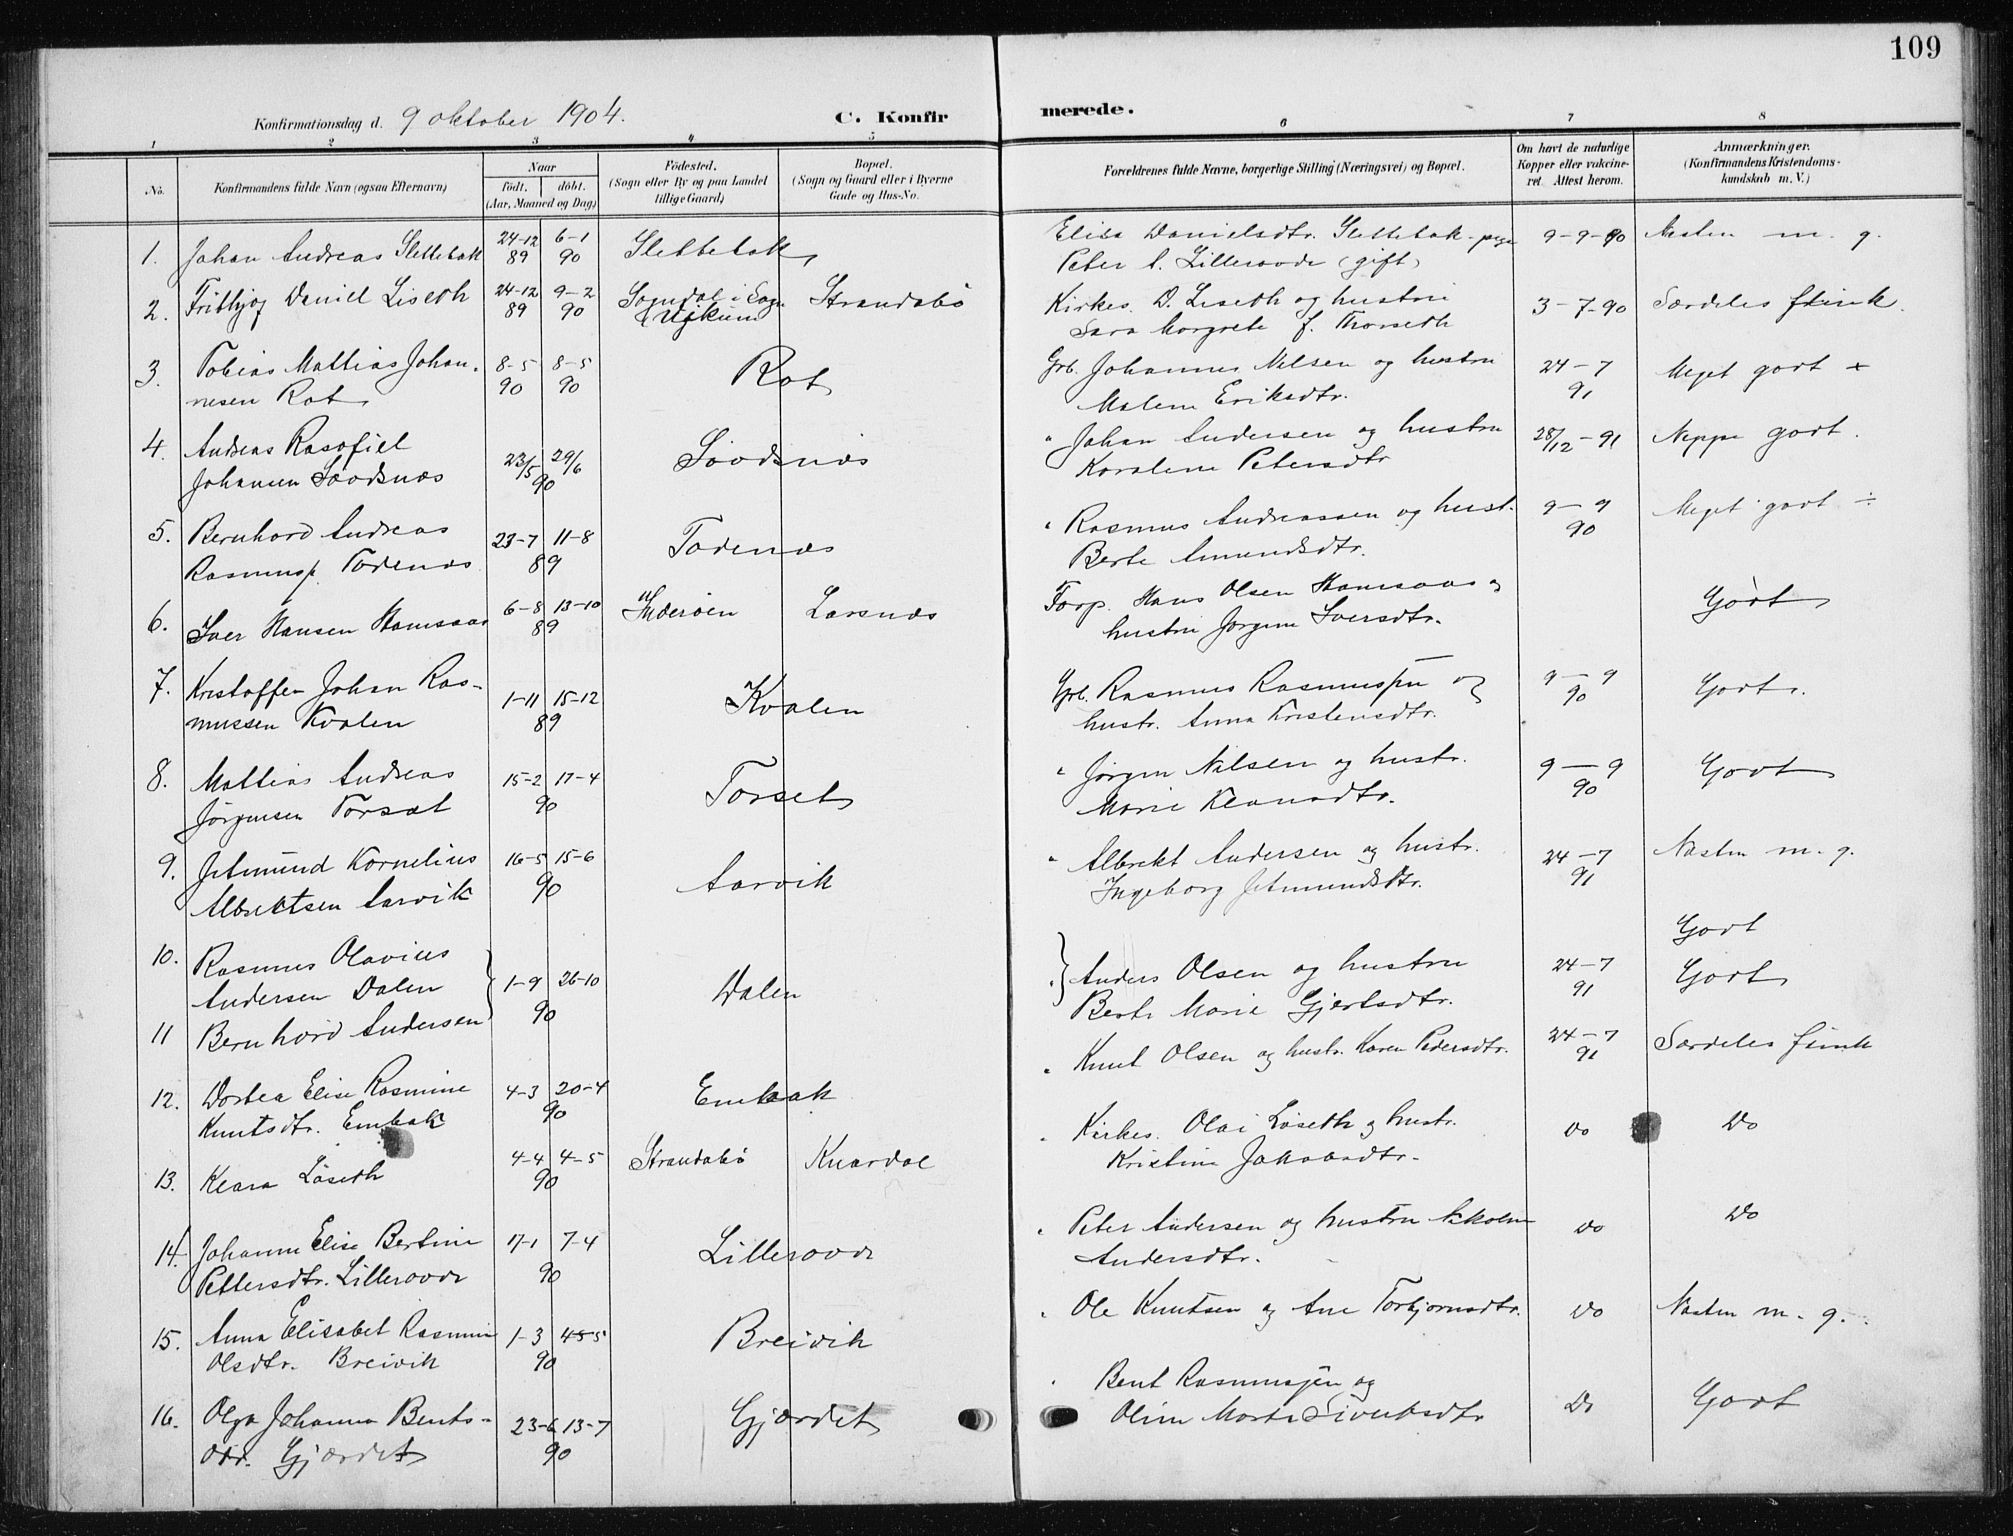 109
Konfirmationsdag d. 9 oktober 1904.
C. Konfirmerede.
1 2 3 4 5 6 7 8
No.
Konfirmandens fulde Navn (ogsaa Efternavn)
Naar
födt. döbt.
(Aar, Maaned og Dag)
Födested.
(Sogn eller By og paa Landet
tillige Gaard)
Bopæl.
(Sogn og Gaard eller i Byerne
Gade og Hus-No.
Forældrenes fulde Navne, borgerlige Stilling (Næringsvei) og Bopæl.
Om havt de naturlige
Kopper eller vakcine-
ret. Attest herom.
Anmærkninger.
(Konfirmandens Kristendoms-
kundskab m. V.)
1. Johan Andreas Slettebak 24-12 89 6-1 90 Slettebak
Elisa Danielsdtr. Slettebak pige
Peter A. Lillerovde (gift) 9-9-90 Næsten m. g.
2. Fritbjof Daniel Liseth 24-12 89 9-2 90 Sogndal i Sogn Strandabö
Kirkes. D. Liseth og hustru
Sara Margrete f. Thorseth 3-7-90 Særdeles flink.
3. Tobias Mattias Johan-
nesen Rot 8-5 90 8-5 90 Rot
Grb. Johannes Nilsen og hustru
Malene Eriksdtr. 24-7 91 Meget godt +
4. Andreas Rasofiel
Johansen Saodsnæs 23/5 29/6 90 Saodsnæs
" Johan Andersen og hustru
Karolene Petersdtr 28/12-91 Neppe godt.
5. Bernhard Andreas
Rasmusn. Todenæs 23-7 11-8 89 Todenæs
" Rasmus Andreassen og hust.
Berte Amundsdtr. 9-9 90 Meget godt ÷
6. Iver Hansen Hamsaas 6-8 13-10 89 Inderöen Larsnæs
Forp. Hans Olsen Hamsaas og
hustru Jörgine Iversdtr. Godt
7. Kristoffer Johan Ras-
mussen Kvalen 1-11 15-12 89 Kvalen
Grb. Rasmus Rasmussen og
hustr. Anna Kristensdtr. 9-9 90 Godt.
8. Mattias Andreas
Jörgensen Torset 15-2 17-4 90 Torset
" Jörgen Nilsen og hustr.
Marie Klausdtr. 9-9 90 Godt
9. Jetmund Kornelius
Albrektsen Aarvik 16-5 15-6 90 Aarvik
" Albrekt Andersen og hustr.
Ingeborg Jetmundsdtr. 24-7 91 Næsten m. g.
10. Rasmus Olavius
Andersen Dalen 1-9 26-10 90 Dalen Godt
11 Bernhard Andersen
" Anders Olsen og hustru
Berte Marie Gjertsdtr. 24-7 91 Godt
12. Dortea Elise Rasmine
Knutsdtr. Embak 4-3 20-4 90 Embak
" Knut Olsen og hustr. Karen Pedersdtr. 24-7 91 Særdeles flink
13. Klara Löseth 4-4 4-5 90 Strandabö Knardal
" Kirkes. Olai Löseth og hustr.
Kristine Jakobsdtr. do Do
14. Johanne Elise Bertine
Pettersdtr. Lillerovde 17-1 7-4 90 Lillerovde
" Peter Andersen og hustru
Andersdtr. do Do
15. Anna Elisabet Rasmine
Olsdtr. Breivik 1-3 90 Breivik
" Ole Knutsen og Ane Torbjornsdtr. Do Næsten m. g.
16. Olga Johanna Bents-
dtr. Gjærdet 23-6 13-7 90 Gjærdet
" Bent Rasmussen og
Oline Marta Sivertsdtr Do Godt